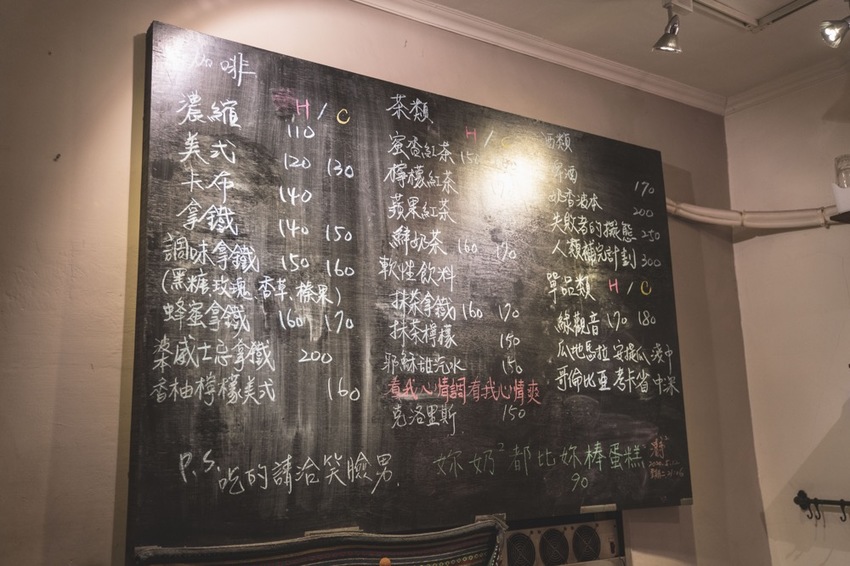 咖啡
H / C
濃縮 110
美式 120 130
卡布 140
拿鐵 140 150
調味拿鐵 150 160
(黑糖.玫瑰.香草.榛果)
蜂蜜拿鐵 160 170
波本威士忌拿鐵 200
香柚檸檬美式 160
茶類
H / C
蜜香紅茶 150
檸檬紅茶
蘋果紅茶
鮮奶茶 160 170
軟性飲料
抹茶拿鐵 160 170
抹茶檸檬 150
耶穌甜汽水 150
看我心情調有我心情爽
克洛里斯 150
酒類
啤酒 170
奶香波本 200
失敗者的擬態 250
人類補完計劃 300
單品類 H / C
鐵觀音 170 180
瓜地馬拉 安提瓜 淺中
哥倫比亞 考卡省 中深
P.S. 吃的請洽笑臉男.
妳奶奶都比妳棒蛋糕
90